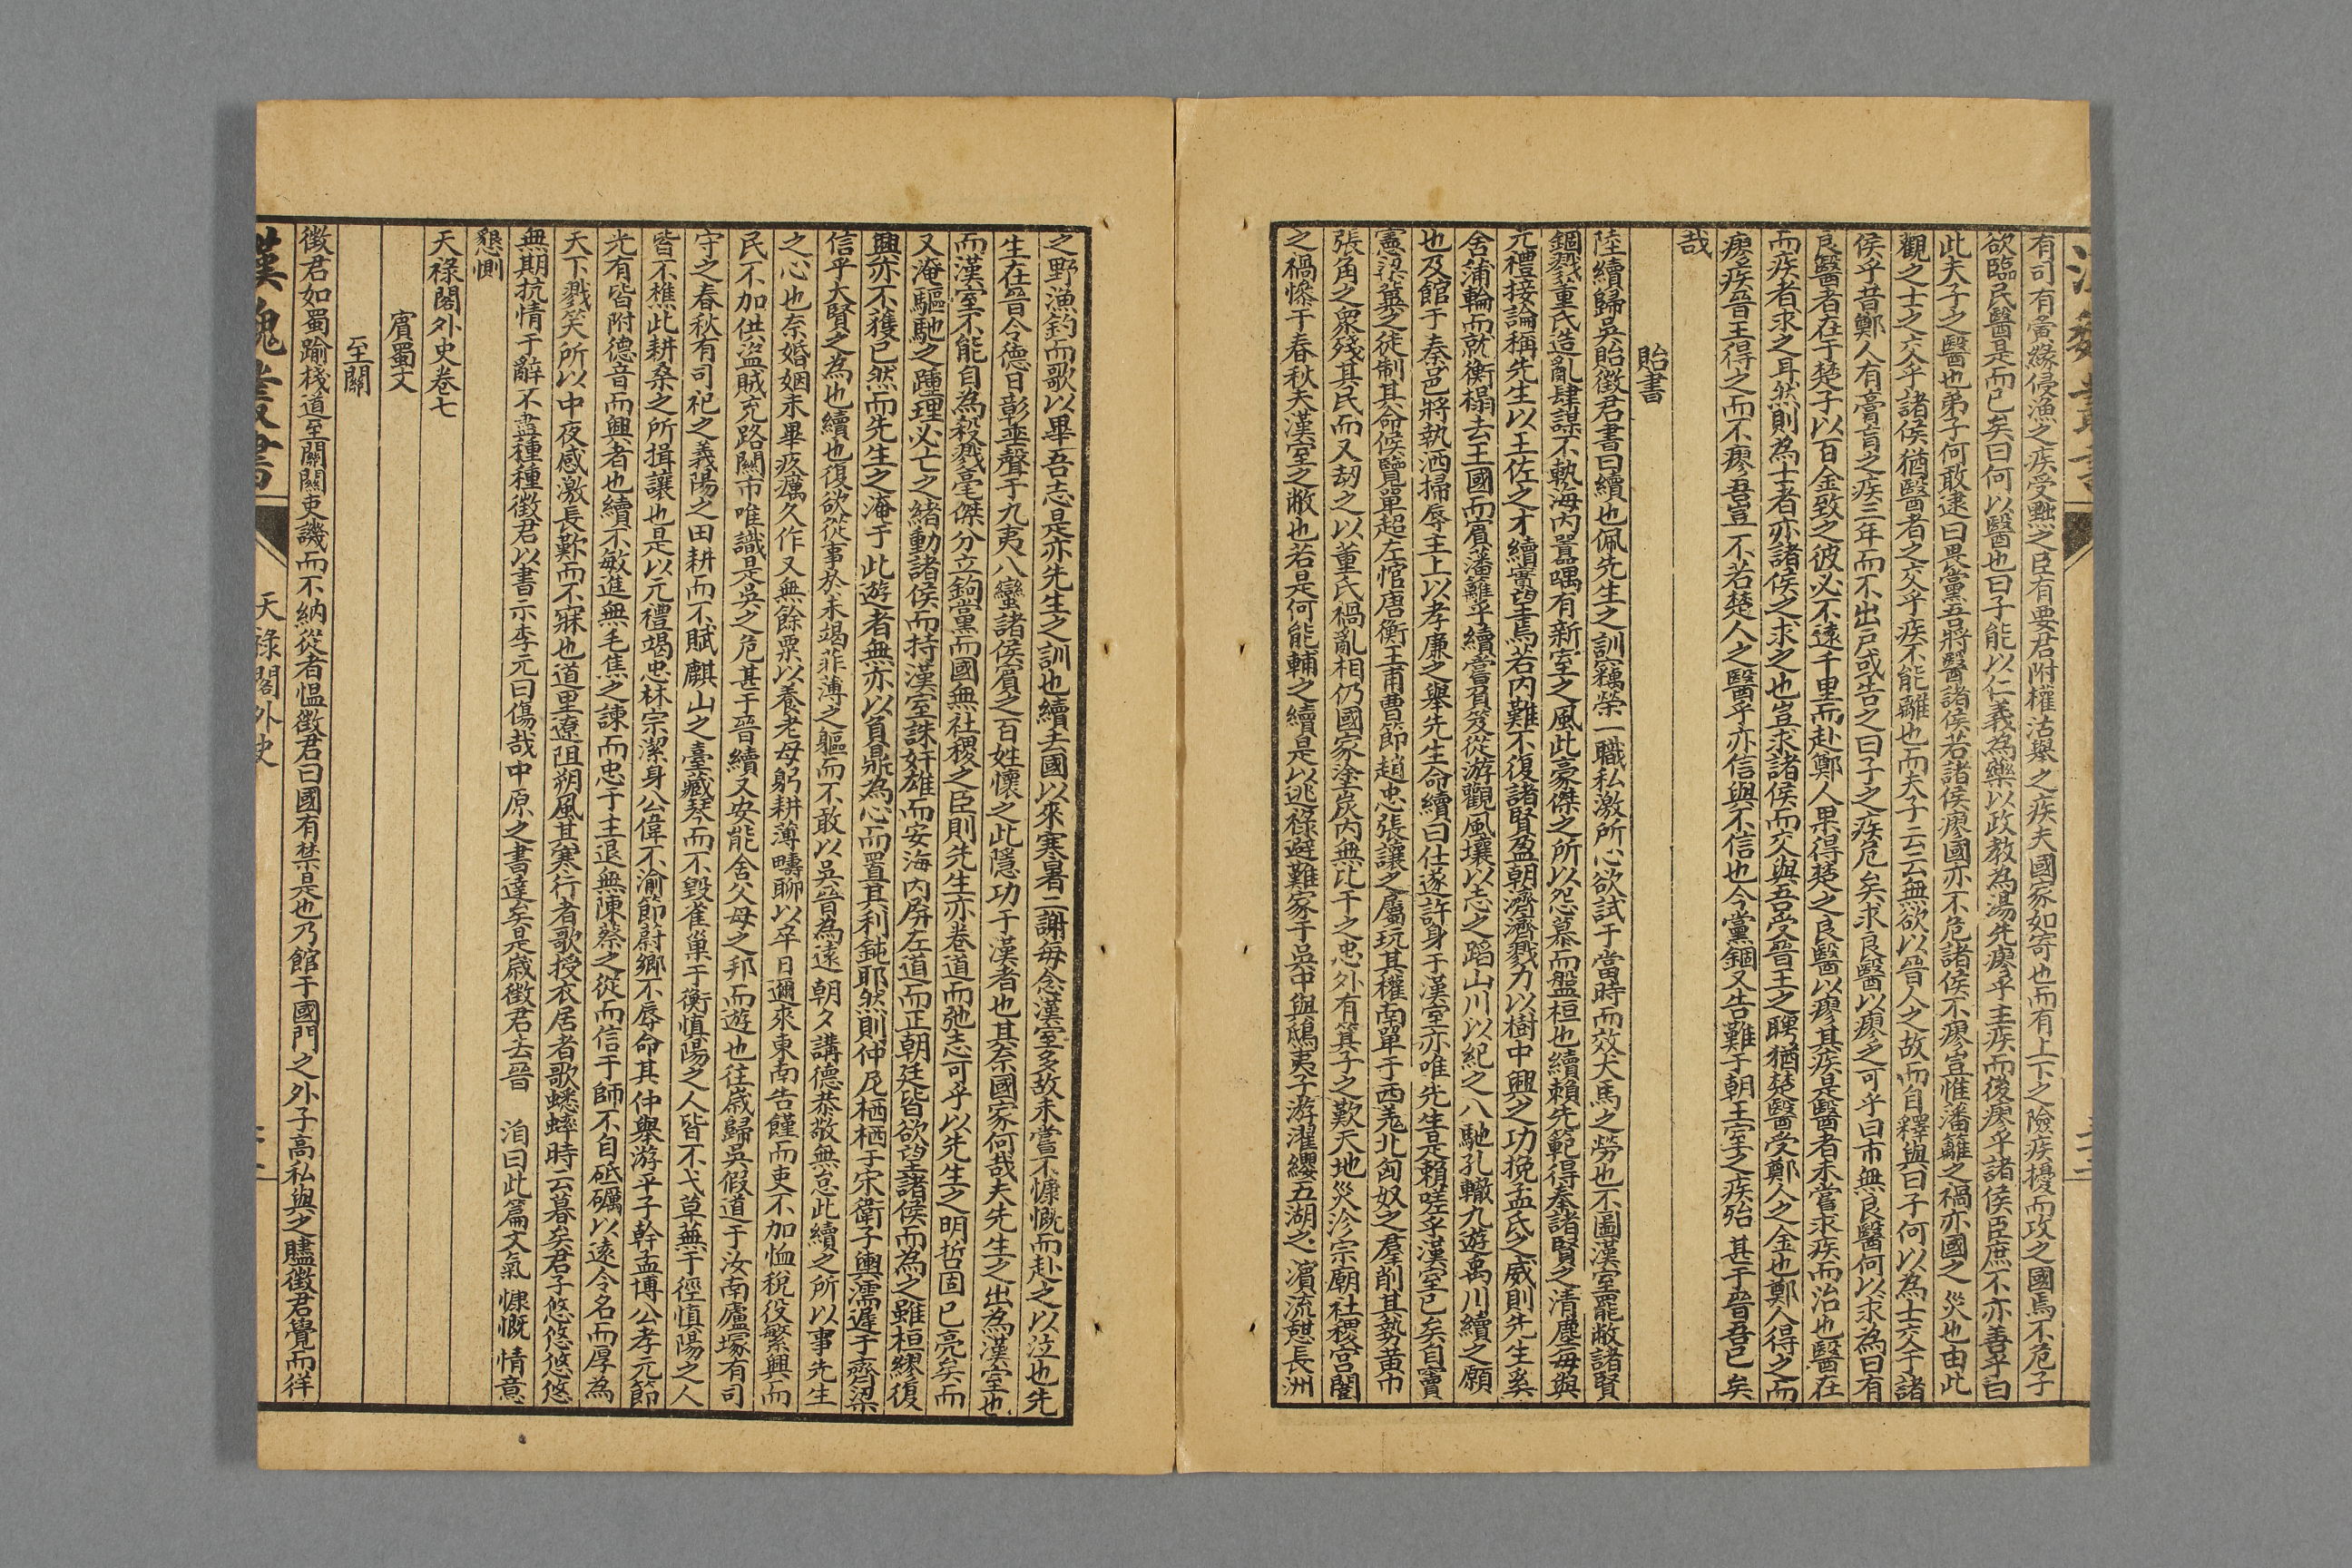 有司有畜緣侵漁之疾受黜之臣有要君附權沽舉之疾夫國家如寄也而有上下之險疾擾而攻之國焉不危子
欲臨民醫是而已矣曰何以醫也曰子能以仁義為藥以政教為湯先瘳乎主疾而後瘳乎諸侯臣庶不亦善乎曰
此夫子之醫也弟子何敢逮曰畏黨吾將醫諸侯若諸侯瘳國亦不危諸侯不瘳豈惟潘籬之禍亦國之災也由此
觀之士之交乎諸侯猶醫者之交乎疾不能離也而夫子云云無欲以晉人之故而自釋與曰子何以為士交于諸
侯乎昔鄭人有膏肓之疾三年而不出戸或告之曰子之疾危矣求良醫以瘳之可乎曰市無良醫何以求為曰有
良醫者在于楚子以百金致之彼必不遠千里而赴鄭人果得楚之良醫以瘳其疾是醫者未嘗求疾而治也醫在
而疾者求之耳然則為士者亦諸侯之求之也豈求諸侯而交與吾受晉王之聘猶楚醫受鄭人之金也鄭人得之而
瘳疾晉王得之而不瘳吾豈不若楚人之醫乎亦信與不信也今黨錮又告難于朝王室之疾殆甚于晉吾已矣
哉
貽書
陸續歸吳貽徵君書曰續也佩先生之訓竊榮一職私激所心欲試于當時而效犬馬之勞也不圖漢室罷敝諸賢
錮戮董氏造亂肆謀不軌海内囂喁有新室之風此豪傑之所以怨慕而盤桓也續賴先範得奏諸賢之清塵每與
元禮接論稱先生以王佐之才續實望焉若内難不復諸賢盈朝濟濟戮力以樹中興之功挽孟氏之威則先生奚
舍蒲輪而就衡榻去王國而賓潘籬乎續嘗負笈從游觀風壤以志之蹈山川以紀之八馳孔轍九遊禹川續之願
也及館于秦邑將執洒掃辱主上以孝廉之舉先生命續曰仕遂許身于漢室亦唯先生是賴嗟乎漢室已矣自竇
憲梁冀之徒制其命侯覽單超左悺唐衡王甫曹節趙忠張讓之屬玩其權南單于西羌北匈奴之羣削其勢黃巾
張角之衆殘其民而又刼之以董氏禍亂相仍國家塗炭内無比干之忠外有箕子之歎天地災沴宗廟社稷宮闈
之禍慘于春秋夫漢室之敝也若是何能輔之續是以逃祿避難家于吳中與鴟夷子游濯纓五湖之濱流憩長洲
之野漁釣而歌以畢吾志是亦先生之訓也續去國以來寒暑二謝每念漢室多故未嘗不慷慨而赴之以泣也先
生在晉今德日彰蜚聲于九夷八蠻諸侯賓之百姓懷之此隱功于漢者也其奈國家何哉夫先生之出為漢室也
而漢室不能自為殺戮毫傑分立鉤黨而國無社稷之臣則先生亦卷道而弛志可乎以先生之明哲固已亮矣而
又淹驅馳之踵理必亡之緒動諸侯而持漢室誅奸雄而安海内屏左道而正朝廷皆欲望諸侯而為之雖桓繆復
興亦不獲已然而先生之淹于此遊者無亦以負鼎為心而置其利鈍耶然則仲尼栖栖于宋衛子輿濡遲于齊梁
信乎大賢之為也續也復欲從事於未竭菲薄之軀而不敢以吳晉為遠朝夕講德恭敬無怠此續之所以事先生
之心也奈婚姻未畢疚癘久作又無餘粟以養老母躬耕薄疇聊以卒日邇來東南告饉而吏不加恤稅役繁興而
民不加供盜賊充路關市唯譏是吳之危甚于晉續又安能舍父母之邦而遊也往歳歸吳假道于汝南廬塚有司
守之春秋有司祀之義陽之田耕而不賦麒山之臺藏琴而不毀雀巢于衡慎陽之人皆不弋草蕪于徑慎陽之人
皆不樵此耕桑之所揖讓也是以元禮竭忠林宗潔身公偉不渝節蔚鄉不辱命其仲舉游平子幹孟博公孝元節
光有皆附德音而興者也續不敏進無毛焦之諫而忠于主退無陳蔡之從而信于師不自砥礪以遠今名而厚為
天下戮笑所以中夜感激長歎而不寐也道里遼阻朔風其寒行者歌授衣居者歌蟋蟀時云暮矣君子悠悠悠悠
無期抗情于辭不盡種種徵君以書示李元曰傷哉中原之書達矣是歳徵君去晉　洎曰此篇文氣慷慨情意
懇惻
天祿閣外史卷七
賓蜀文
至關
徵君如蜀踰棧道至關關吏譏而不納從者慍徵君曰國有禁是也乃館于國門之外子高私與之贐徵君覺而徉
漢魏叢書
天祿閣外史